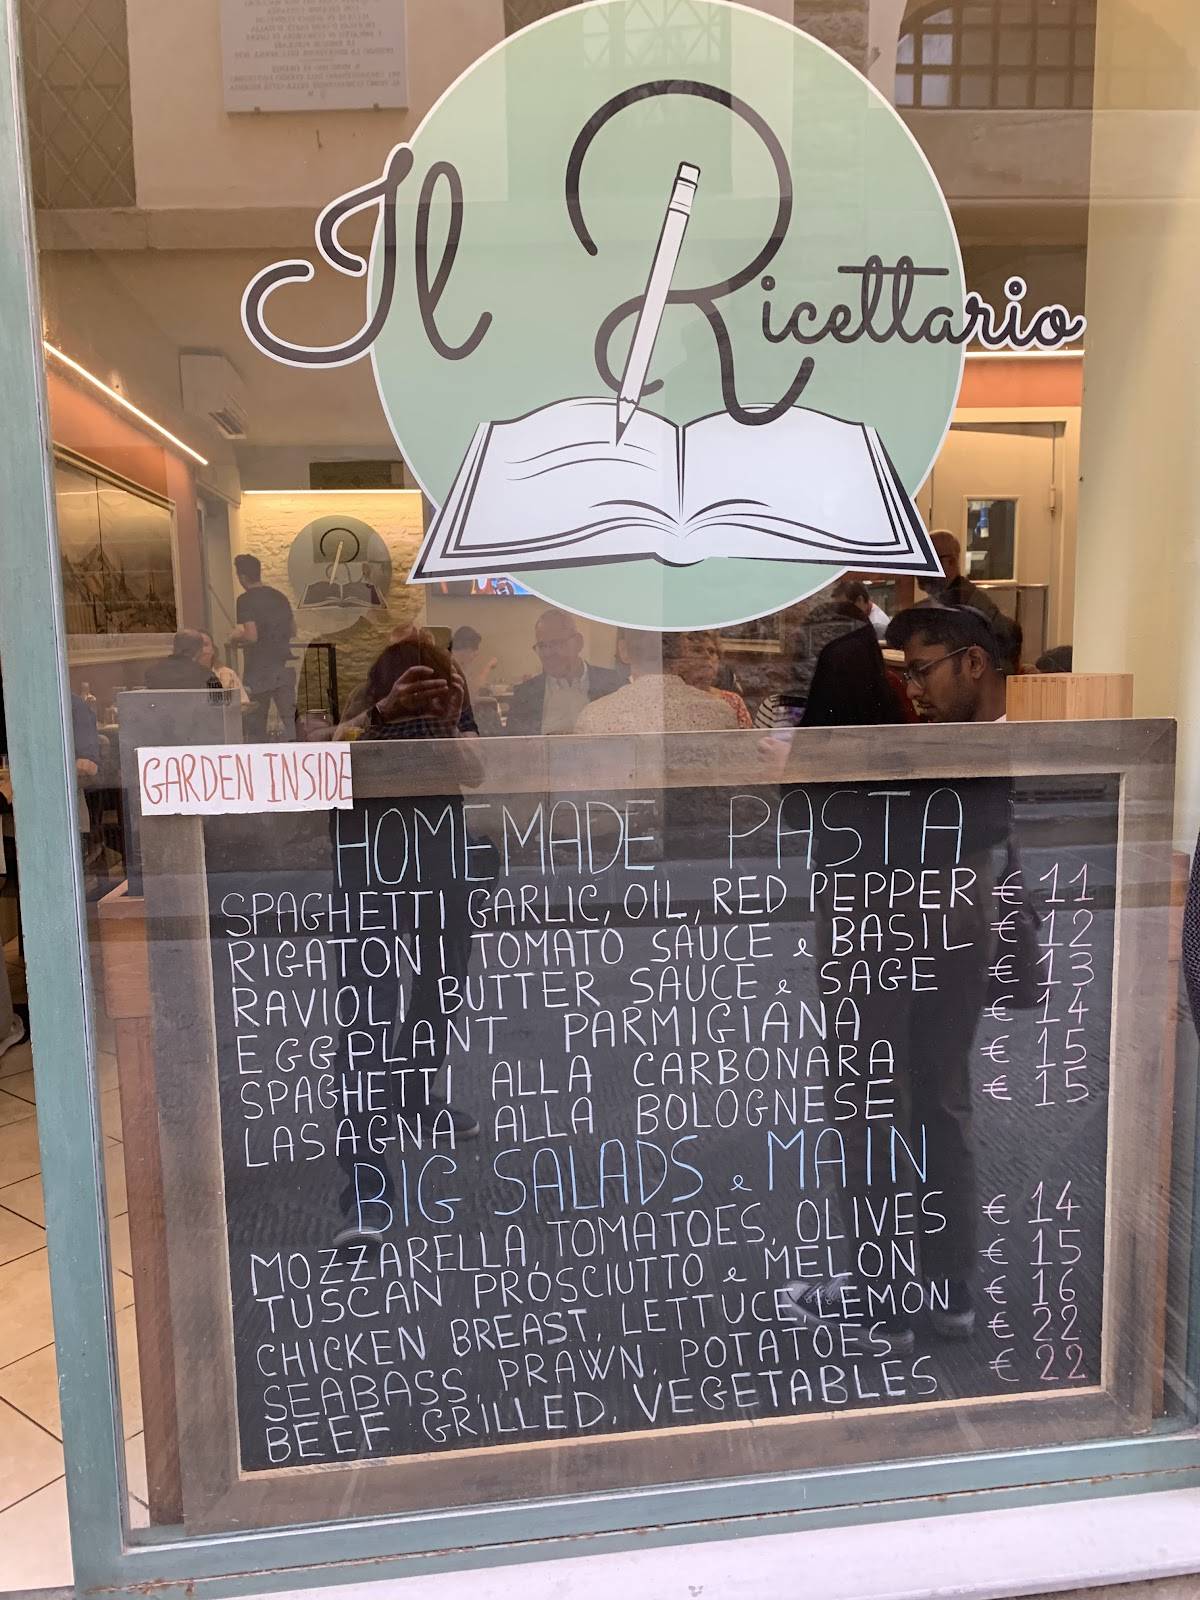 Il Ricettario
GARDEN INSIDE
HOMEMADE PASTA
SPAGHETTI GARLIC, OIL, RED PEPPER € 11
RIGATONI TOMATO SAUCE e BASIL € 12
RAVIOLI BUTTER SAUCE e SAGE € 13
EGGPLANT PARMIGIANA € 14
SPAGHETTI ALLA CARBONARA € 15
LASAGNA ALLA BOLOGNESE € 15
BIG SALADS e MAIN
MOZZARELLA, TOMATOES, OLIVES € 14
TUSCAN PROSCIUTTO e MELON € 15
CHICKEN BREAST, LETTUCE, LEMON € 16
SEABASS, PRAWN, POTATOES € 22
BEEF GRILLED, VEGETABLES € 22